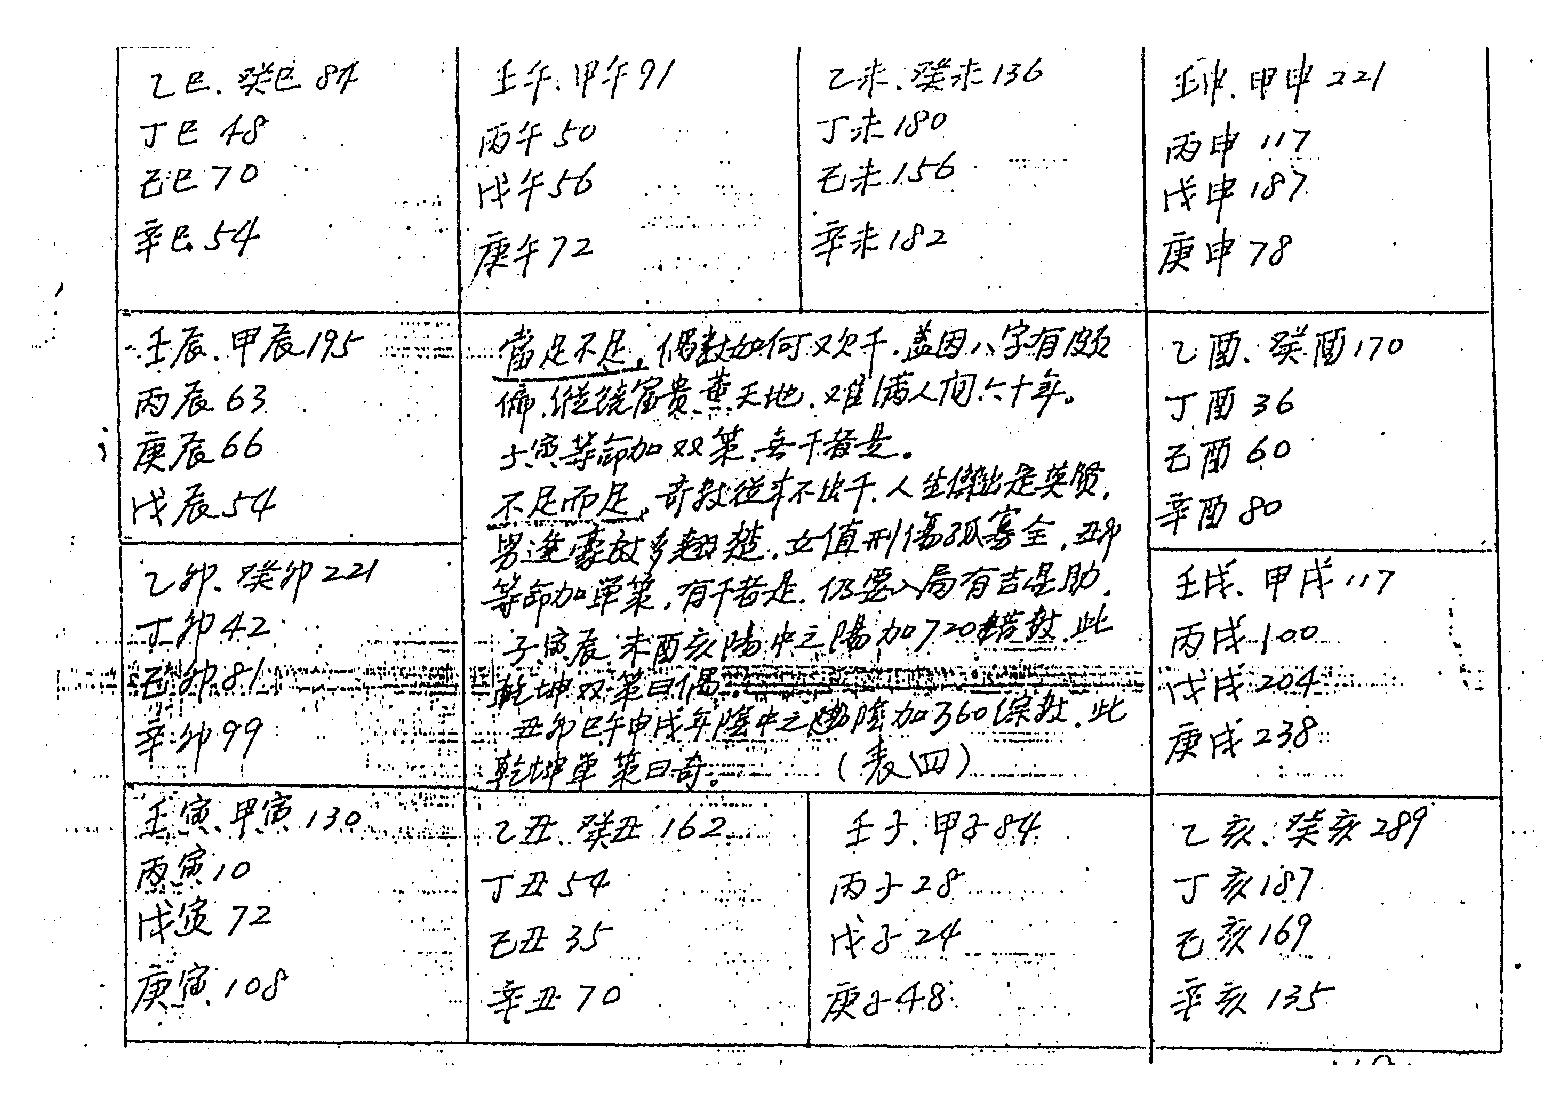 乙巳.癸巳84
丁巳48
己巳70
辛巳54
壬午.甲午91
丙午50
戊午56
庚午72
乙未.癸未136
丁未180
己未156
辛未182
壬申.甲申221
丙申117
戊申187
庚申78
壬辰.甲辰195
丙辰63
庚辰66
戊辰54
当足不足,偶数如何又欠千.盖因八字有颇
偏.纵饶富贵 天地.难满人间六十年。
子寅等命加双策.无千者是。
不足而足,奇数从来不出千.人生傑出是英贤.
男逢豪放多翘楚.女值刑傷孤寡全.丑卯
等命加单策.有千者是.仍要入局有吉星助.
子寅辰未酉亥陽中之陽加720错数.此
乾坤双策曰偶.
丑卯巳午申戌年陰中之陰加360综数.此
乾坤单策曰奇。
(表四)
乙酉.癸酉170
丁酉36
己酉60
辛酉80
乙卯.癸卯221
丁卯42
己卯81
辛卯99
壬戌.甲戌117
丙戌100
戊戌204
庚戌238
壬寅.甲寅130
丙寅10
戊寅72
庚寅108
乙丑.癸丑162
丁丑54
己丑35
辛丑70
壬子.甲子84
丙子28
戊子24
庚子48
乙亥.癸亥289
丁亥187
己亥169
辛亥135